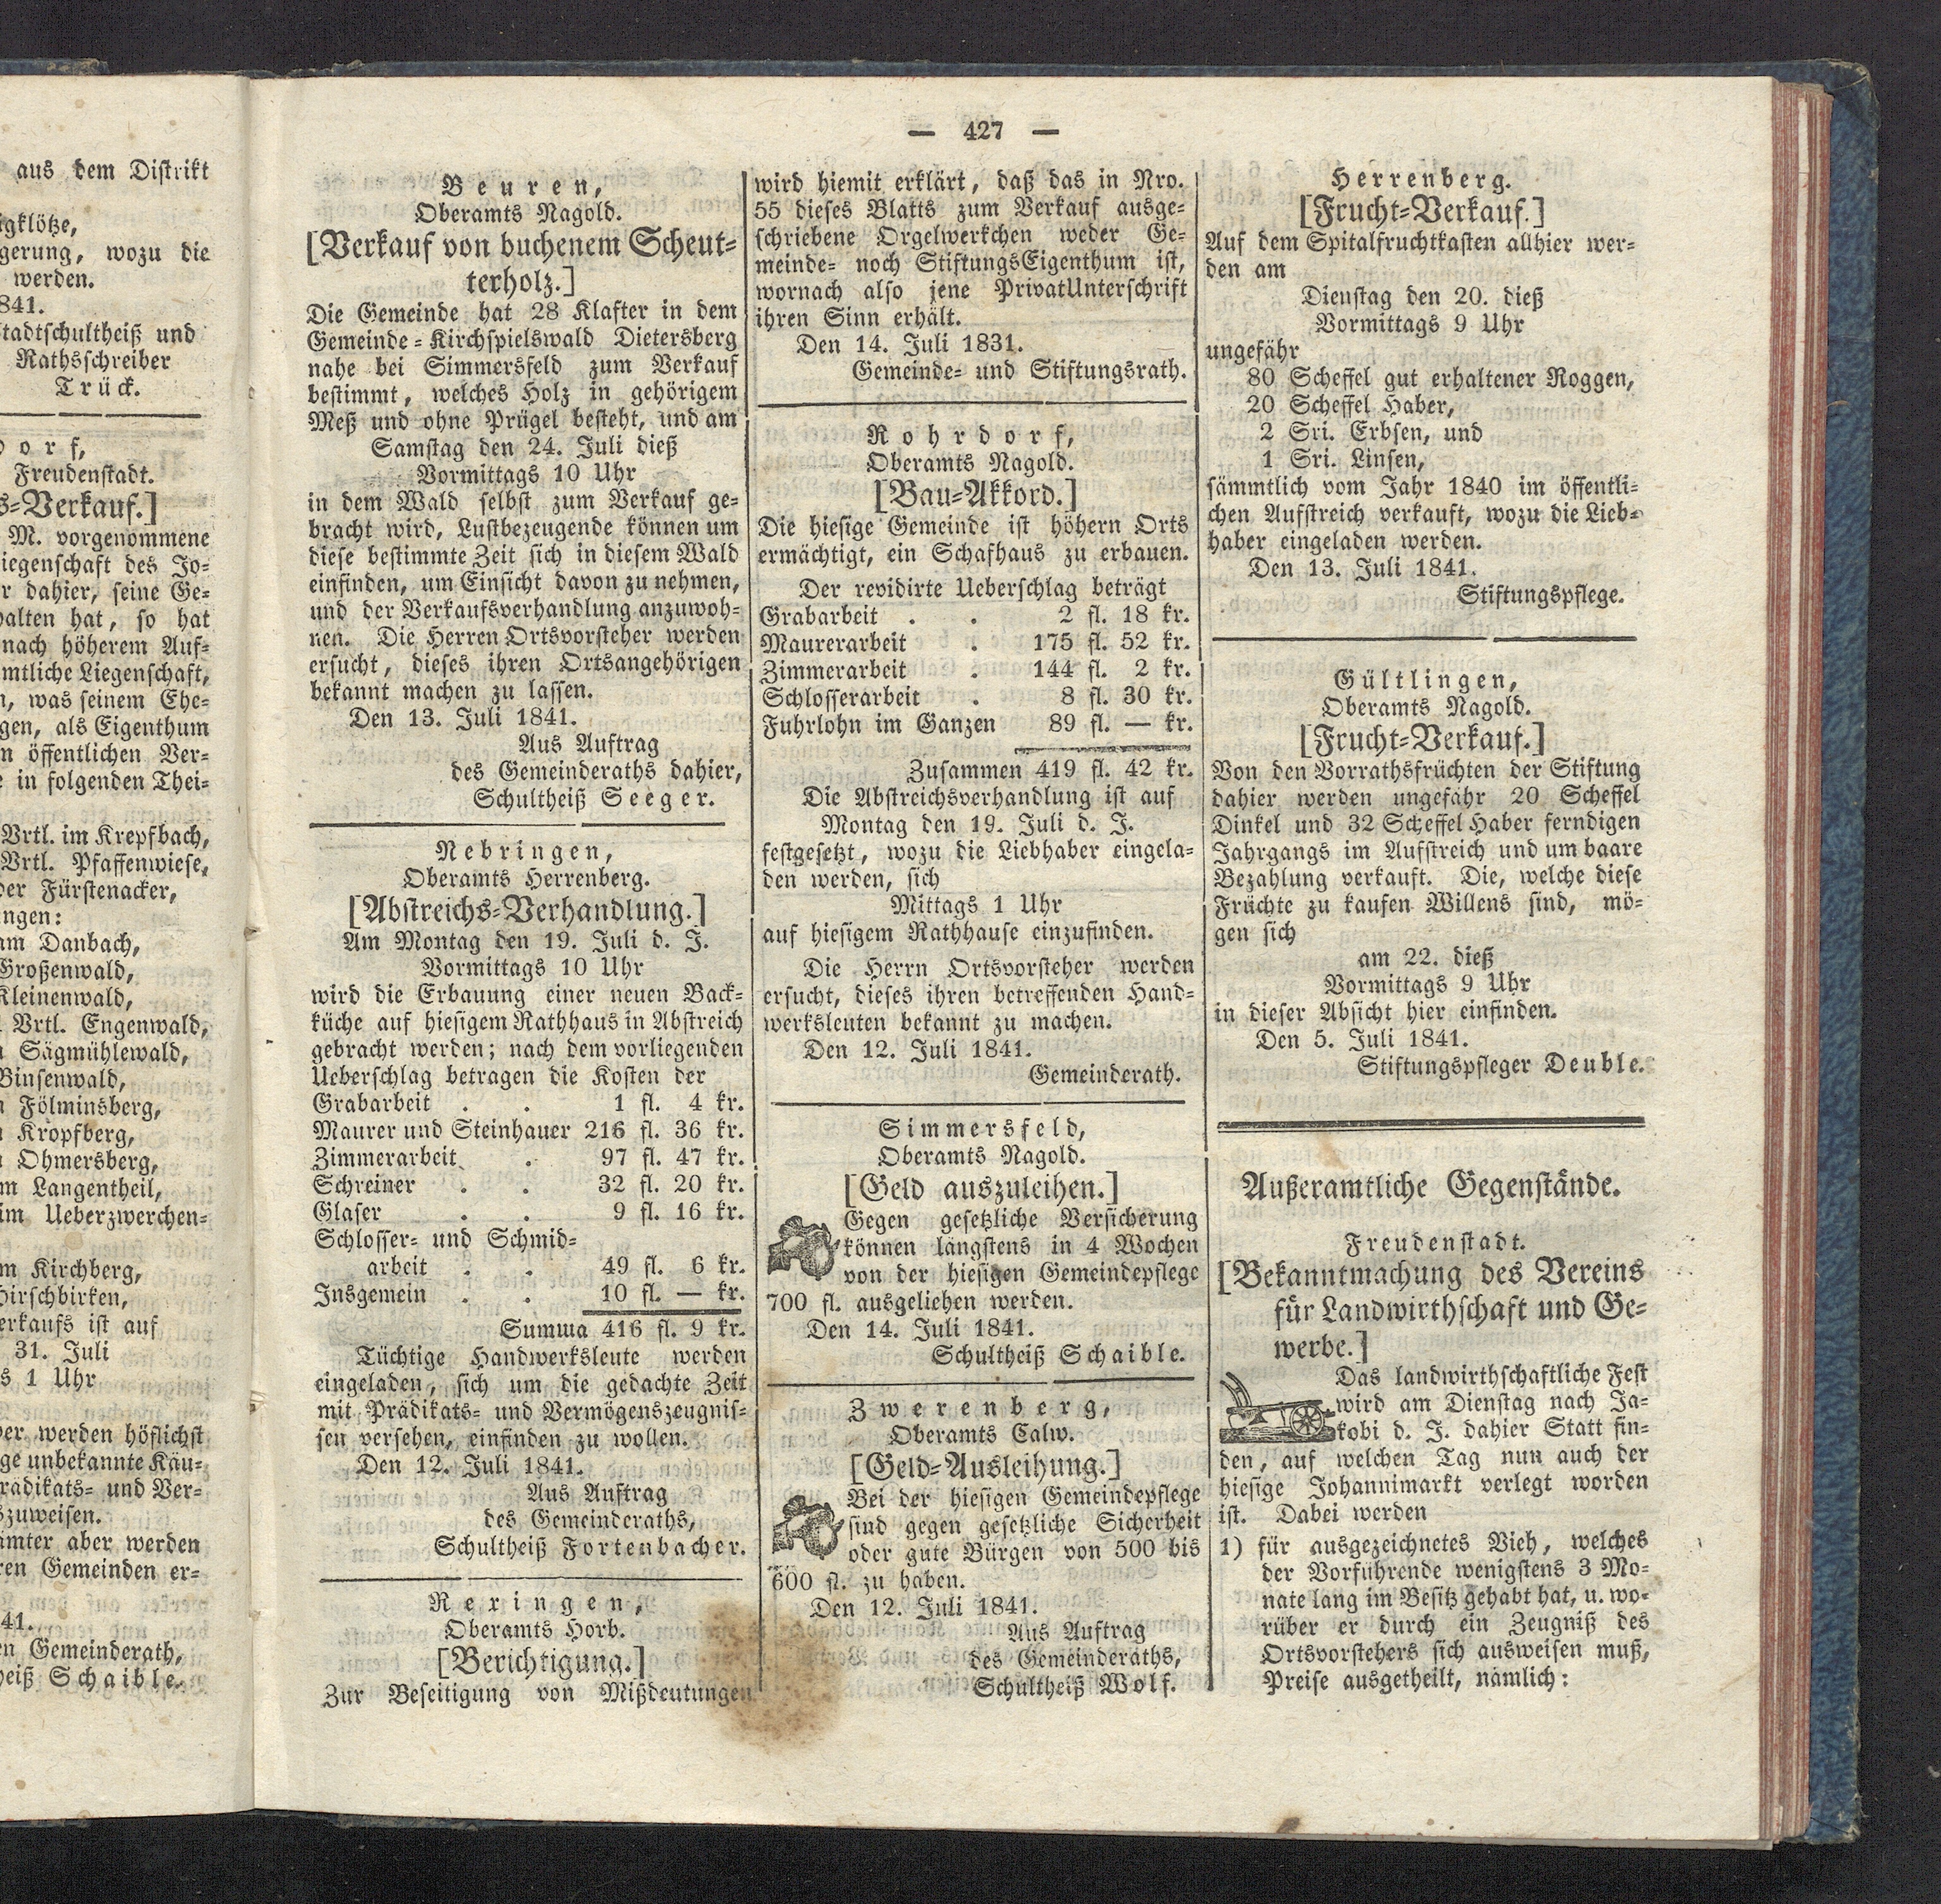 aus dem Distrikt
igklötze,
gerung, wozu die
werden.
841.
Stadtschultheiß und
Rathsschreiber
Trück.
dorf,
Freudenstadt.
s-Verkauf.]
M. vorgenommene
iegenschaft des Jo-
r dahier, seine Ge-
halten hat, so hat
nach höherem Auf-
mtliche Liegenschaft,
n, was seinem Ehe-
gen, als Eigenthum
n öffentlichen Ver-
e in folgenden Thei-
Vrtl. im Krepfbach,
Vrtl. Pfaffenwiese,
der Fürstenacker,
ngen:
am Danbach,
Großenwald,
Kleinenwald,
Vrtl. Engenwald,
Sägmühlewald,
Binsenwald,
Fölminsberg,
Kropfberg,
Ohmersberg,
m Langentheil,
im Ueberzwerchen-
m Kirchberg,
Hirschbirken,
erkaufs ist auf
31. Juli
s 1 Uhr
er werden höflichst
ge unbekannte Käu-
rädikats- und Ver-
szuweisen.
ämter aber werden
ren Gemeinden er-
41.
en Gemeinderath,
heiß Schaible.
— 427 —
Beuren,
Oberamts Nagold.
[Verkauf von buchenem Scheut-
terholz.]
Die Gemeinde hat 28 Klafter in dem
Gemeinde-Kirchspielswald Dietersberg
nahe bei Simmersfeld zum Verkauf
bestimmt, welches Holz in gehörigem
Meß und ohne Prügel besteht, und am
Samstag den 24. Juli dieß
Vormittags 10 Uhr
in dem Wald selbst zum Verkauf ge-
bracht wird, Lustbezeugende können um
diese bestimmte Zeit sich in diesem Wald
einfinden, um Einsicht davon zu nehmen,
und der Verkaufsverhandlung anzuwoh-
nen. Die Herren Ortsvorsteher werden
ersucht, dieses ihren Ortsangehörigen
bekannt machen zu lassen.
Den 13. Juli 1841.
Aus Auftrag
des Gemeinderaths dahier,
Schultheiß Seeger.
Nebringen,
Oberamts Herrenberg.
[Abstreichs-Verhandlung.]
Am Montag den 19. Juli d. J.
Vormittags 10 Uhr
wird die Erbauung einer neuen Back-
küche auf hiesigem Rathhaus in Abstreich
gebracht werden; nach dem vorliegenden
Ueberschlag betragen die Kosten der
Grabarbeit . . 1 fl. 4 kr.
Maurer und Steinhauer 216 fl. 36 kr.
Zimmerarbeit . 97 fl. 47 kr.
Schreiner . . 32 fl. 20 kr.
Glaser . . 9 fl. 16 kr.
Schlosser- und Schmid-
arbeit . . 49 fl. 6 kr.
Insgemein . . 10 fl. — kr.
Summa 416 fl. 9 kr.
Tüchtige Handwerksleute werden
eingeladen, sich um die gedachte Zeit
mit Prädikats- und Vermögenszeugnis-
sen versehen, einfinden zu wollen.
Den 12. Juli 1841.
Aus Auftrag
des Gemeinderaths,
Schultheiß Fortenbacher.
Rexingen,
Oberamts Horb.
[Berichtigung.]
Zur Beseitigung von Mißdeutungen
wird hiemit erklärt, daß das in Nro.
55 dieses Blatts zum Verkauf ausge-
schriebene Orgelwerkchen weder Ge-
meinde- noch StiftungsEigenthum ist,
wornach also jene PrivatUnterschrift
ihren Sinn erhält.
Den 14. Juli 1831.
Gemeinde- und Stiftungsrath.
Rohrdorf,
Oberamts Nagold.
[Bau-Akkord.]
Die hiesige Gemeinde ist höhern Orts
ermächtigt, ein Schafhaus zu erbauen.
Der revidirte Ueberschlag beträgt
Grabarbeit . . 2 fl. 18 kr.
Maurerarbeit . 175 fl. 52 kr.
Zimmerarbeit . 144 fl. 2 kr.
Schlosserarbeit . 8 fl. 30 kr.
Fuhrlohn im Ganzen 89 fl. — kr.
Zusammen 419 fl. 42 kr.
Die Abstreichsverhandlung ist auf
Montag den 19. Juli d. J.
festgesetzt, wozu die Liebhaber eingela-
den werden, sich
Mittags 1 Uhr
auf hiesigem Rathhause einzufinden.
Die Herrn Ortsvorsteher werden
ersucht, dieses ihren betreffenden Hand-
werksleuten bekannt zu machen.
Den 12. Juli 1841.
Gemeinderath.
Simmersfeld,
Oberamts Nagold.
[Geld auszuleihen.]
Gegen gesetzliche Versicherung
können längstens in 4 Wochen
von der hiesigen Gemeindepflege
700 fl. ausgeliehen werden.
Den 14. Juli 1841.
Schultheiß Schaible.
Zwerenberg,
Oberamts Calw.
[Geld-Ausleihung.]
Bei der hiesigen Gemeindepflege
sind gegen gesetzliche Sicherheit
oder gute Bürgen von 500 bis
600 fl. zu haben.
Den 12. Juli 1841.
Aus Auftrag
des Gemeinderaths,
Schultheiß Wolf.
Herrenberg.
[Frucht-Verkauf.]
Auf dem Spitalfruchtkasten allhier wer-
den am
Dienstag den 20. dieß
Vormittags 9 Uhr
ungefähr
80 Scheffel gut erhaltener Roggen,
20 Scheffel Haber,
2 Sri. Erbsen, und
1 Sri. Linsen,
sämmtlich vom Jahr 1840 im öffentli-
chen Aufstreich verkauft, wozu die Lieb-
haber eingeladen werden.
Den 13. Juli 1841.
Stiftungspflege.
Gültlingen,
Oberamts Nagold.
[Frucht-Verkauf.]
Von den Vorrathsfrüchten der Stiftung
dahier werden ungefähr 20 Scheffel
Dinkel und 32 Scheffel Haber ferndigen
Jahrgangs im Aufstreich und um baare
Bezahlung verkauft. Die, welche diese
Früchte zu kaufen Willens sind, mö-
gen sich
am 22. dieß
Vormittags 9 Uhr
in dieser Absicht hier einfinden.
Den 5. Juli 1841.
Stiftungspfleger Deuble.
Außeramtliche Gegenstände.
Freudenstadt.
[Bekanntmachung des Vereins
für Landwirthschaft und Ge-
werbe.]
Das landwirthschaftliche Fest
wird am Dienstag nach Ja-
kobi d. J. dahier Statt fin-
den, auf welchen Tag nun auch der
hiesige Johannimarkt verlegt worden
ist. Dabei werden
1) für ausgezeichnetes Vieh, welches
der Vorführende wenigstens 3 Mo-
nate lang im Besitz gehabt hat, u. wo-
rüber er durch ein Zeugniß des
Ortsvorstehers sich ausweisen muß,
Preise ausgetheilt, nämlich: